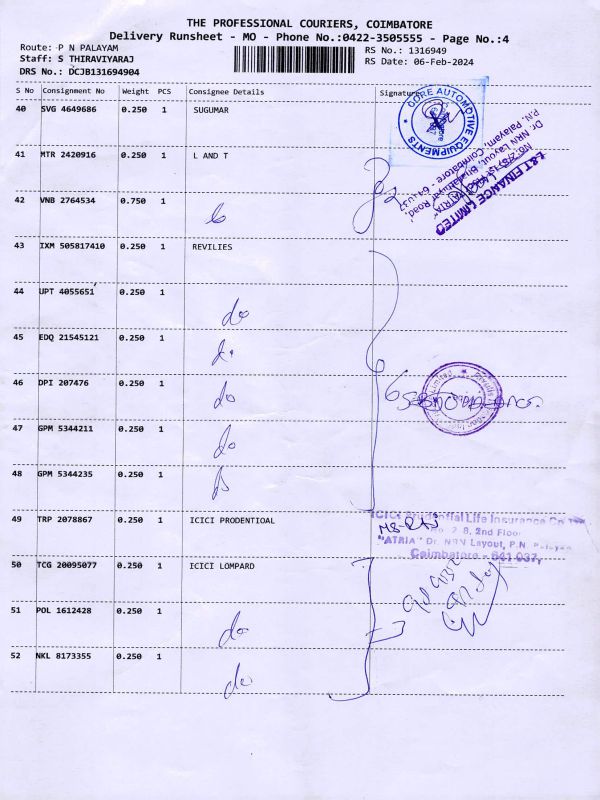 THE PROFESSIONAL COURIERS, COIMBATORE
Delivery Runsheet - MO - Phone No.:0422-3505555 - Page No.:4
Route: P N PALAYAM
RS No.: 1316949
Staff: S THIRAVIYARAJ
RS Date: 06-Feb-2024
DRS No.: DCJB131694904
S No Consignment No Weight PCS Consignee Details Signature
40 SVG 4649686 0.250 1 SUGUMAR
GORE AUTOMOTIVE EQUIPMENTS
41 MTR 2420916 0.250 1 L AND T
L&T FINANCE LIMITED
Dr NRN Layout,
P.N. Palayam, Coimbatore - 641037
42 VNB 2764534 0.750 1
43 IXM 505817410 0.250 1 REVILIES
44 UPT 4055651 0.250 1 do
45 EDQ 21545121 0.250 1 do
46 DPI 207476 0.250 1 do
47 GPM 5344211 0.250 1 do
48 GPM 5344235 0.250 1
49 TRP 2078867 0.250 1 ICICI PRODENTIOAL
ICICI Prudential Life Insurance Co
2nd Floor
"ATRIA" Dr. NRN Layout, P.N. Palayam
Coimbatore - 641 037
50 TCG 20095077 0.250 1 ICICI LOMPARD
51 POL 1612428 0.250 1 do
52 NKL 8173355 0.250 1 do